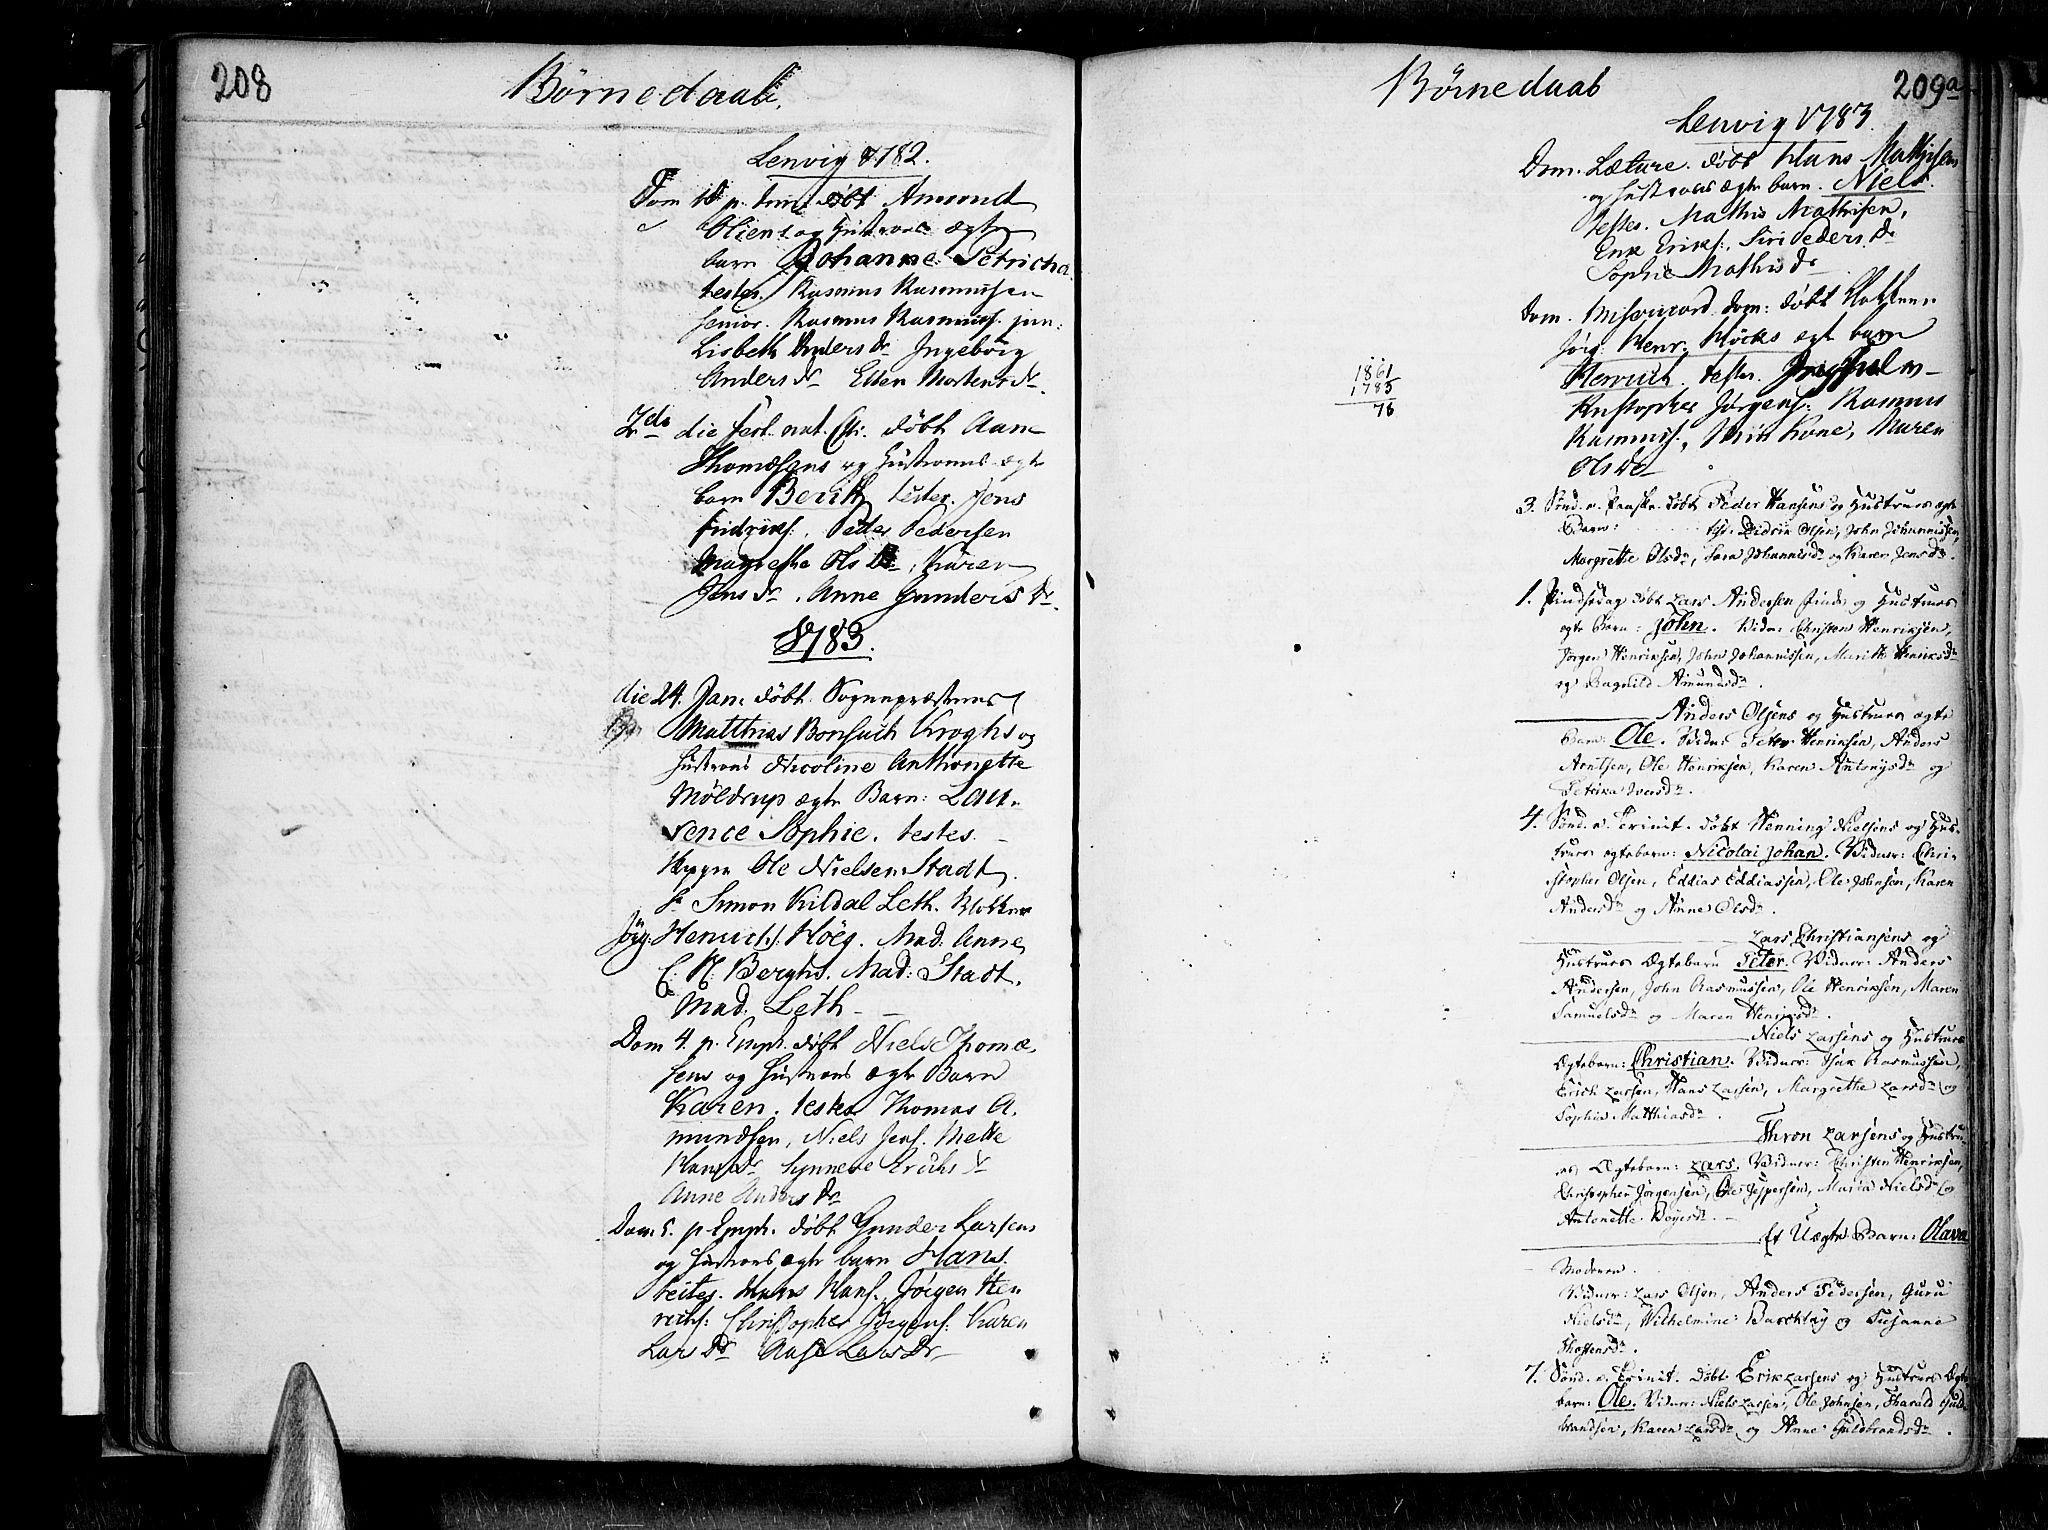 208
Børnedaab.
Lenvig 1782.
Dom p. trin. døbt Amund
Oliens og Hustrues ægte
barn Johanne Petricha
testes. Rasmus Rasmussen
senior. Rasmus Rasmuss. jun:
Lisbeth Andersdr Ingeborg
Andersdr Ellen Mortensdr.
2de die fest. nat. Chr. døbt Aam
Thomæsens og Hustrues ægte
barn Berith testes. Jens
Fridrichs. Peder Pedersen
Magrethe Olsdr, Karen
Jensdr. Anne Gundersdr.
1783.
die 24. Jan: døbt Sognepræstens
Matthias Bonsach Kroghs og
Hustrues Nicoline Anthonette
Møldrup ægte Barn: Lau-
rence Sophie. testes.
Ole Nielsen Stadt
Hr Simon Kildal Leth. Klokker
Jørg: Henrich: Høeg. Mad. Anne
C: H: Berghs. Mad: Stadt.
Mad. Leth
Dom 4. p. Epiph. døbt Niels Thomæ-
sens og Hustrues ægte Barn
Karen. testes Thomas A-
mundsen, Niels Jens. Mette
Hansdr Synneve Erichsdr
Anne Andersdr
Dom. 5. p Epiph. døbt Gunder Larsens
og Hustrues ægte barn Hans.
testes. Hans Hans. Jørgen Hen
richs: Christopher Jørgens: Karen
Larsdr Aase Larsdr
Børnedaab
209a
Lenvig 1783.
Dom. Lætare. døbt Hans Mathisens
og Hustrues ægte barn. Niels.
testes. Mathis Mathisen,
Erik Eriks. Siri Pedersdr
Sophie Mathisdr
Dom. Misericord. dom: døbt Klokker
Jørg: Henr. Høeks egt barn
Henrich. testes.
Kristopher Jørgens: Rasmus
Rasmuss., Kone, Maren
Olsdr
1861
1783
78
3. Sønd. e. Paaske døbt Peder Hansens og Hustrues ægte
Barn: test: Didrik Olsen, John Johannissen,
Margrethe Olsdr, Sara Johannisdr og Karen Jensdr.
1. Pindsedag døbt Lars Andersen og Hustrues
egte Barn: John. Vidner: Christen Henriksen,
Jørgen Henriksen, John Johannissen, Marith Henriksdr
og Ragnild Amundsdr.
Anders Olsens og Hustrues ægte
Barn: Ole. Vidner: Peter Henriksen, Anders
Arntsen, Ole Henriksen, Karen Antonysdr og
Petrika Iversdr.
4. Sønd. e. Trinit. døbt Henning Nielsens og Hus-
trues ægtebarn: Nicolai Johan. Vidner: Chri-
stopher Olsen, Eddias Eddiassen, Ole Johnsen, Karen
Andersdr og Anne Olsdr.
Lars Christiansens og
Hustrues Ægtebarn Peter. Vidner: Anders
Andersen, John Rasmussen, Ole Henriksen, Maren
Samuelsdr og Maren Henriksdr.
Niels Larsens og Hustrues
Ægtebarn: Christian. Vidner: Isak Rasmussen,
Erich Larsen, Hans Larsen, Margrethe Larsdr og
Sophia Matthiasdr.
Thron Larsens og Hustru-
es Ægtebarn: Lars. Vidner: Christen Henriksen,
Christopher Jørgensen, Ole Jeppersen, Maria Nielsdr og
Antonette Beyersdr.
Et Uægte Barn: Olava
Moderen.
Vidner: Lars Olsen, Anders Pedersen, Guru
Nielsdr, Wilhelmine Barchlay og Susanne
Thostensdr.
7. Sønd. e. Trinit. døbt Erik Larsens og Hustrues Ægte
barn: Ole. Vidner: Niels Larsen, Ole Johnsen, Tharald Guld-
brandsen, Karen Larsdr og Anne Guldbrandsdr.